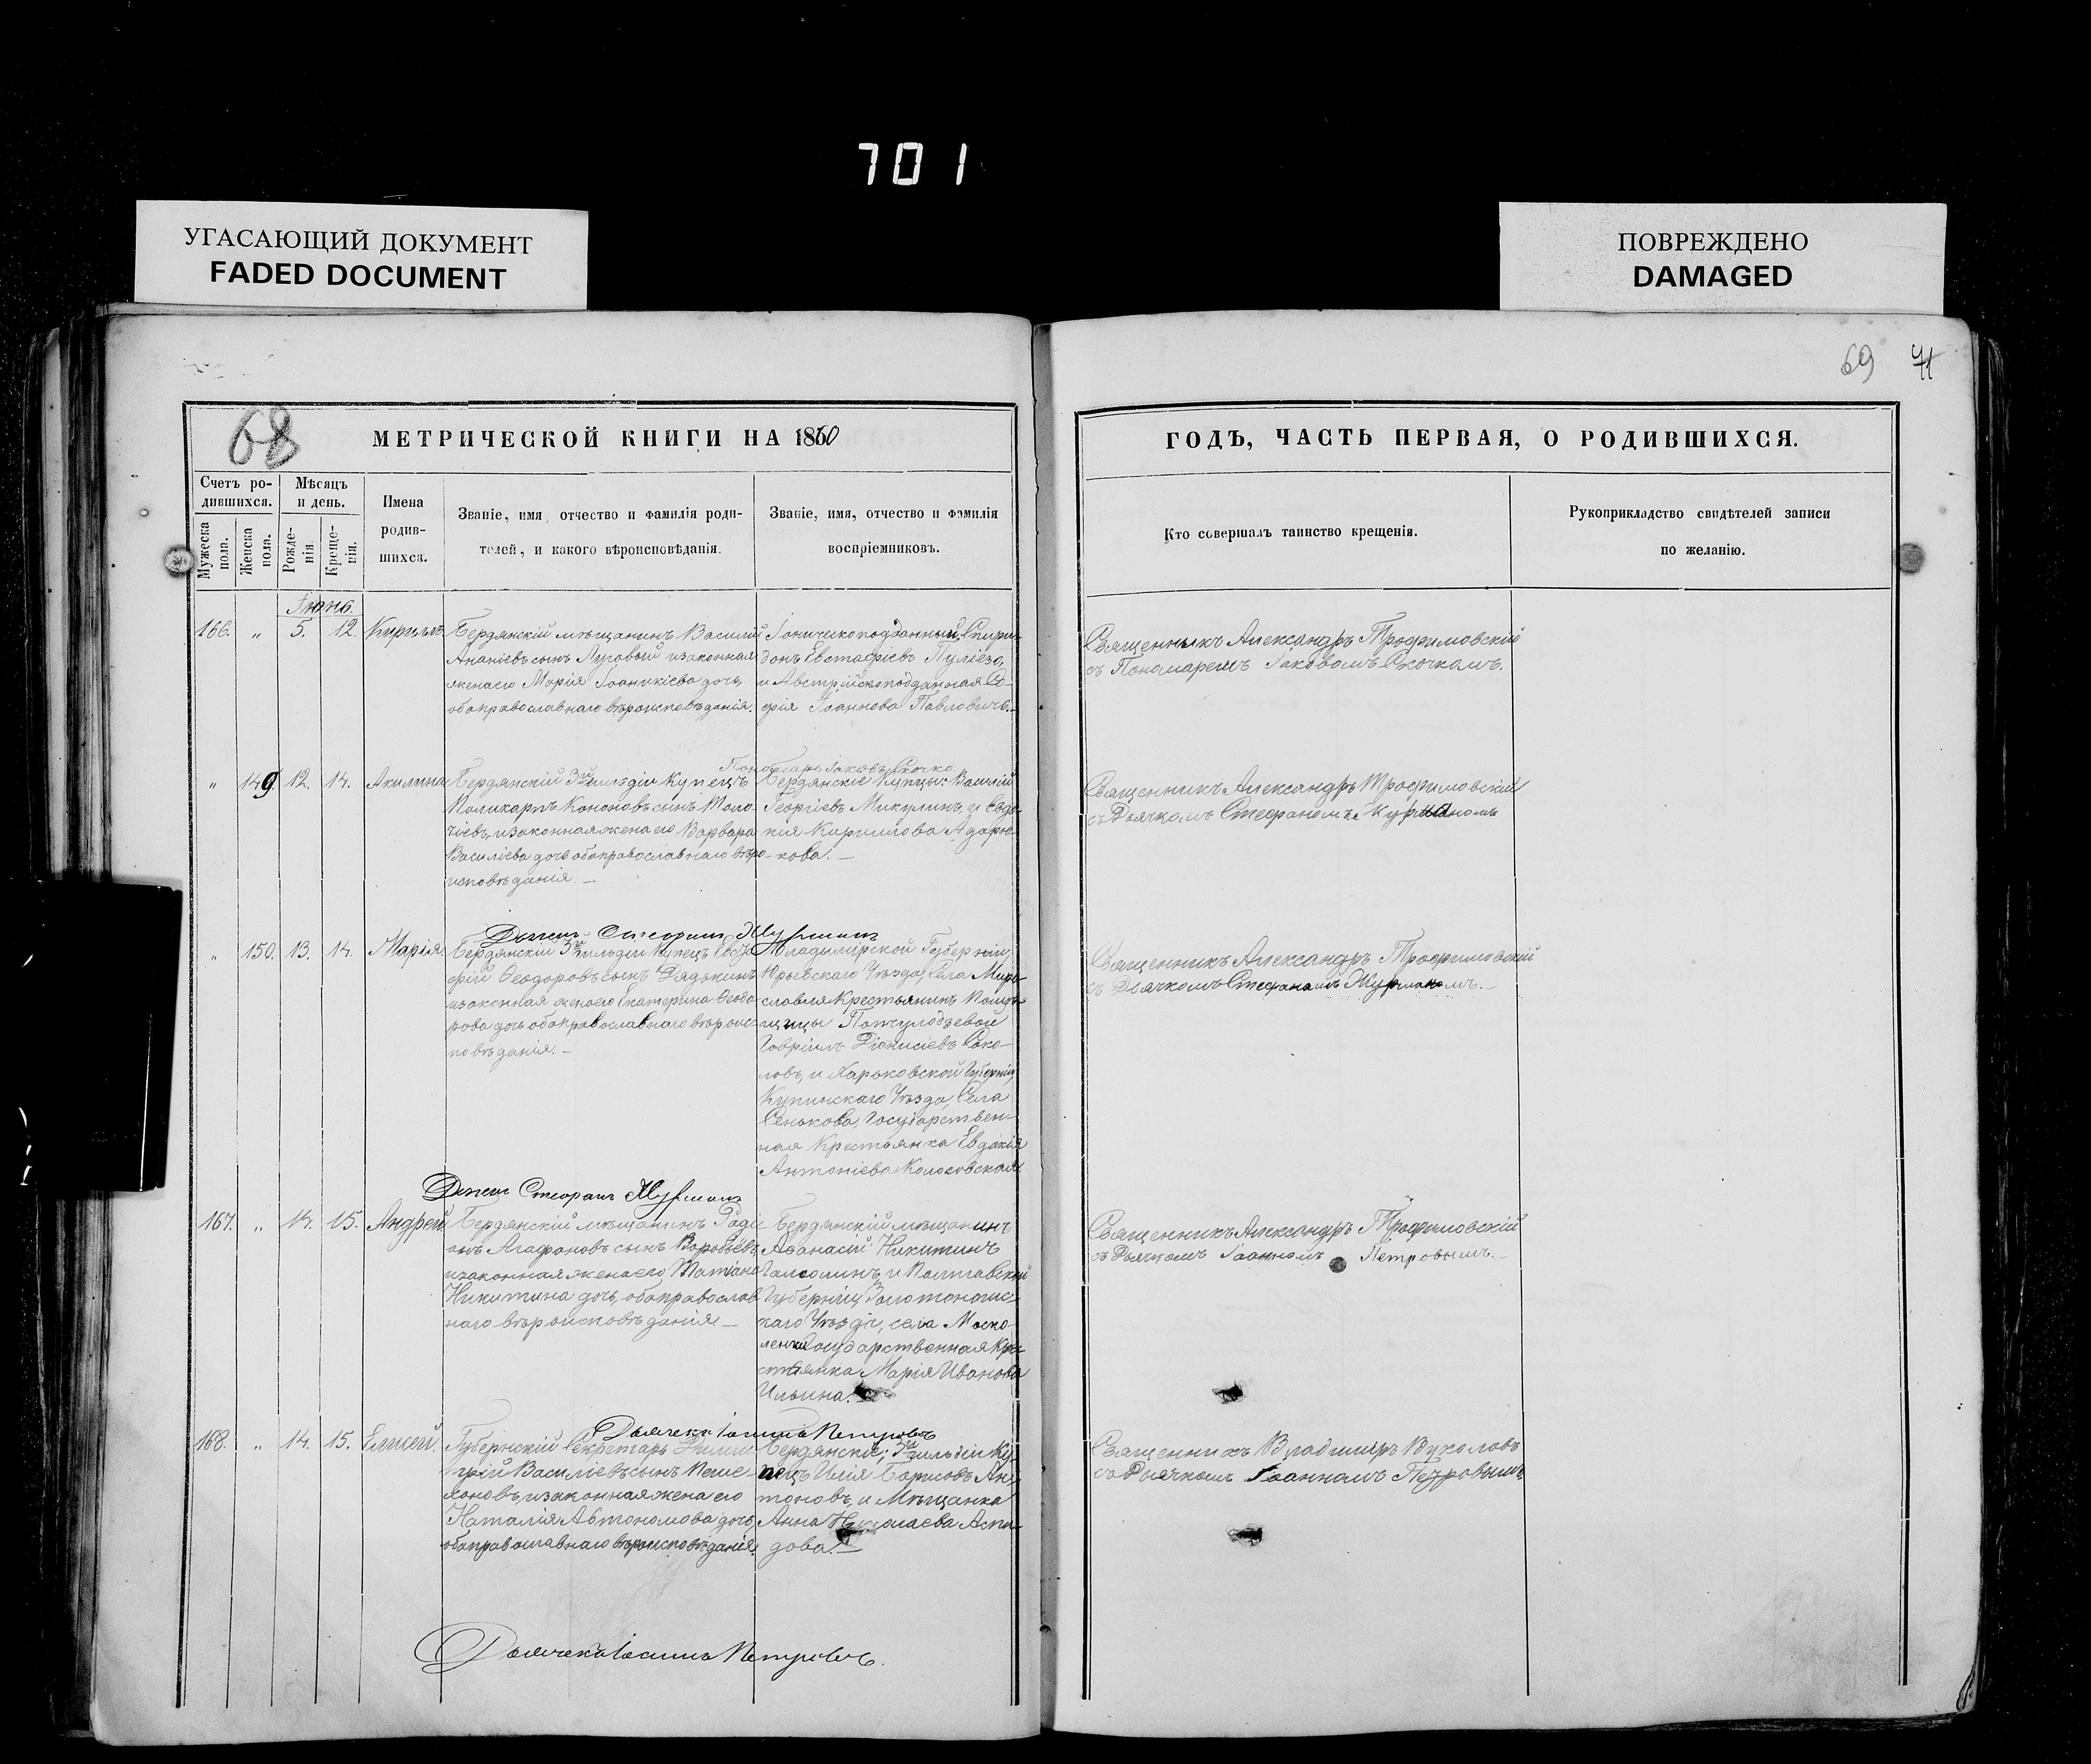 701
УГАСАЮЩИЙ ДОКУМЕНТ
FADED DOCUMENT
ПОВРЕЖДЕНО
DAMAGED
69 71
68
МЕТРИЧЕСКОЙ КНИГИ НА 1860
Счетъ ро-
дившихся.
Мужеска
пола.
Женска
пола.
Мѣсяцъ
и день.
Рожде-
нія.
Креще-
нія.
Имена
родив-
шихся.
Званіе, имя, отчество и фамилія роди-
телей, и какого вѣроисповѣданія.
Званіе, имя, отчество и фамилія
воспріемниковъ.
ГОДЪ, ЧАСТЬ ПЕРВАЯ, О РОДИВШИХСЯ.
Кто совершалъ таинство крещенія.
Рукоприкладство свидѣтелей записи
по желанію.
Іюнь.
166. „ 5. 12. Кириллъ
Бердянскій мѣщанинъ Василій
Ананіевъ сынъ Луговый и законная
жена его Марія Іоаникіева дочь,
оба православнаго вѣроисповѣданія.
Іоническоподданный Спири-
донъ Евстафіевъ
и Австрійскоподданная Со-
фія Іоаннова Павловичъ.
Священникъ Александръ Трофимовскій
съ Пономаремъ Іаковомъ Скочкомъ.
Пономарь Іаковъ Скочко
„ 149. 12. 14. Акилина
Бердянскій 3й гильдіи Купецъ
Поликарпъ Кононовъ сынъ Толо-
чіевъ, и законная жена его Варвара
Василіева дочь оба православнаго вѣро-
исповѣданія. —
Бердянскіе Купцы: Василій
Георгіевъ Микулинъ, и Евдо-
кія Кириллова Адарю-
кова. —
Священникъ Александръ Трофимовскій
съ Дьячкомъ Стефаномъ
Дьячекъ Стефанъ
„ 150. 13. 14. Марія.
Бердянскій 3й гильдіи Купецъ Евста-
фій Ѳеодоровъ сынъ Дядькинъ
и законная жена его Екатерина Ѳеодо-
рова дочь оба православнаго вѣроис-
повѣданія. —
Владымірской Губерніи
Юрьевскаго Уѣзда, Села Миро-
славля Крестьянинъ Помѣ-
щицы
Гавріилъ Діонисіевъ Соко-
ловъ, и Харьковской Губерніи,
Купинскаго Уѣзда, Села
Сенькова, Государствен-
ная Крестьянка Евдокія
Антоніева
Священникъ Александръ Трофимовскій
съ Дьячкомъ Стефаномъ
Дьячекъ Стефанъ
167. „ 14. 15. Андрей
Бердянскій мѣщанинъ Радіо-
онъ Агафоновъ сынъ Воробьёвъ,
и законная жена его Татіана
Никитина дочь, оба православ-
наго вѣроисповѣданія —
Бердянскій мѣщанинъ
Аѳанасій Никитинъ
и Полтавской
Губерніи, Золотоношс-
каго Уѣзда, села Моско-
ленки Государственная Кре-
стьянка Марія Иванова
Ильина. —
Священникъ Александръ Трофимовскій
съ Дьячкомъ Іоанномъ Петровымъ. —
Дьячекъ Іоаннъ Петровъ
168. „ 14. 15. Елисей.
Губернскій Секретарь Дими-
трій Василіевъ сынъ
и законная жена его
Наталія Автономова дочь,
оба православнаго вѣроисповѣданія.
Бердянскіе; 3й гильдіи Ку-
пецъ Илія Борисовъ Ан-
тоновъ, и Мѣщанка
Анна Николаева
дова. —
Священникъ Владиміръ Вуколовъ
съ Дьячкомъ Іоанномъ Петровымъ.
Дьячекъ Іоаннъ Петровъ.